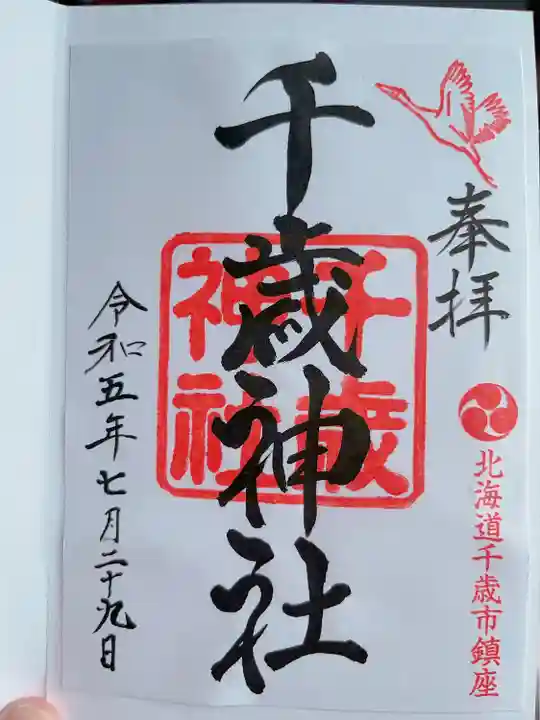 奉拝
北海道千歳市鎮座
千歳神社
千歳
神社
令和五年七月二十九日